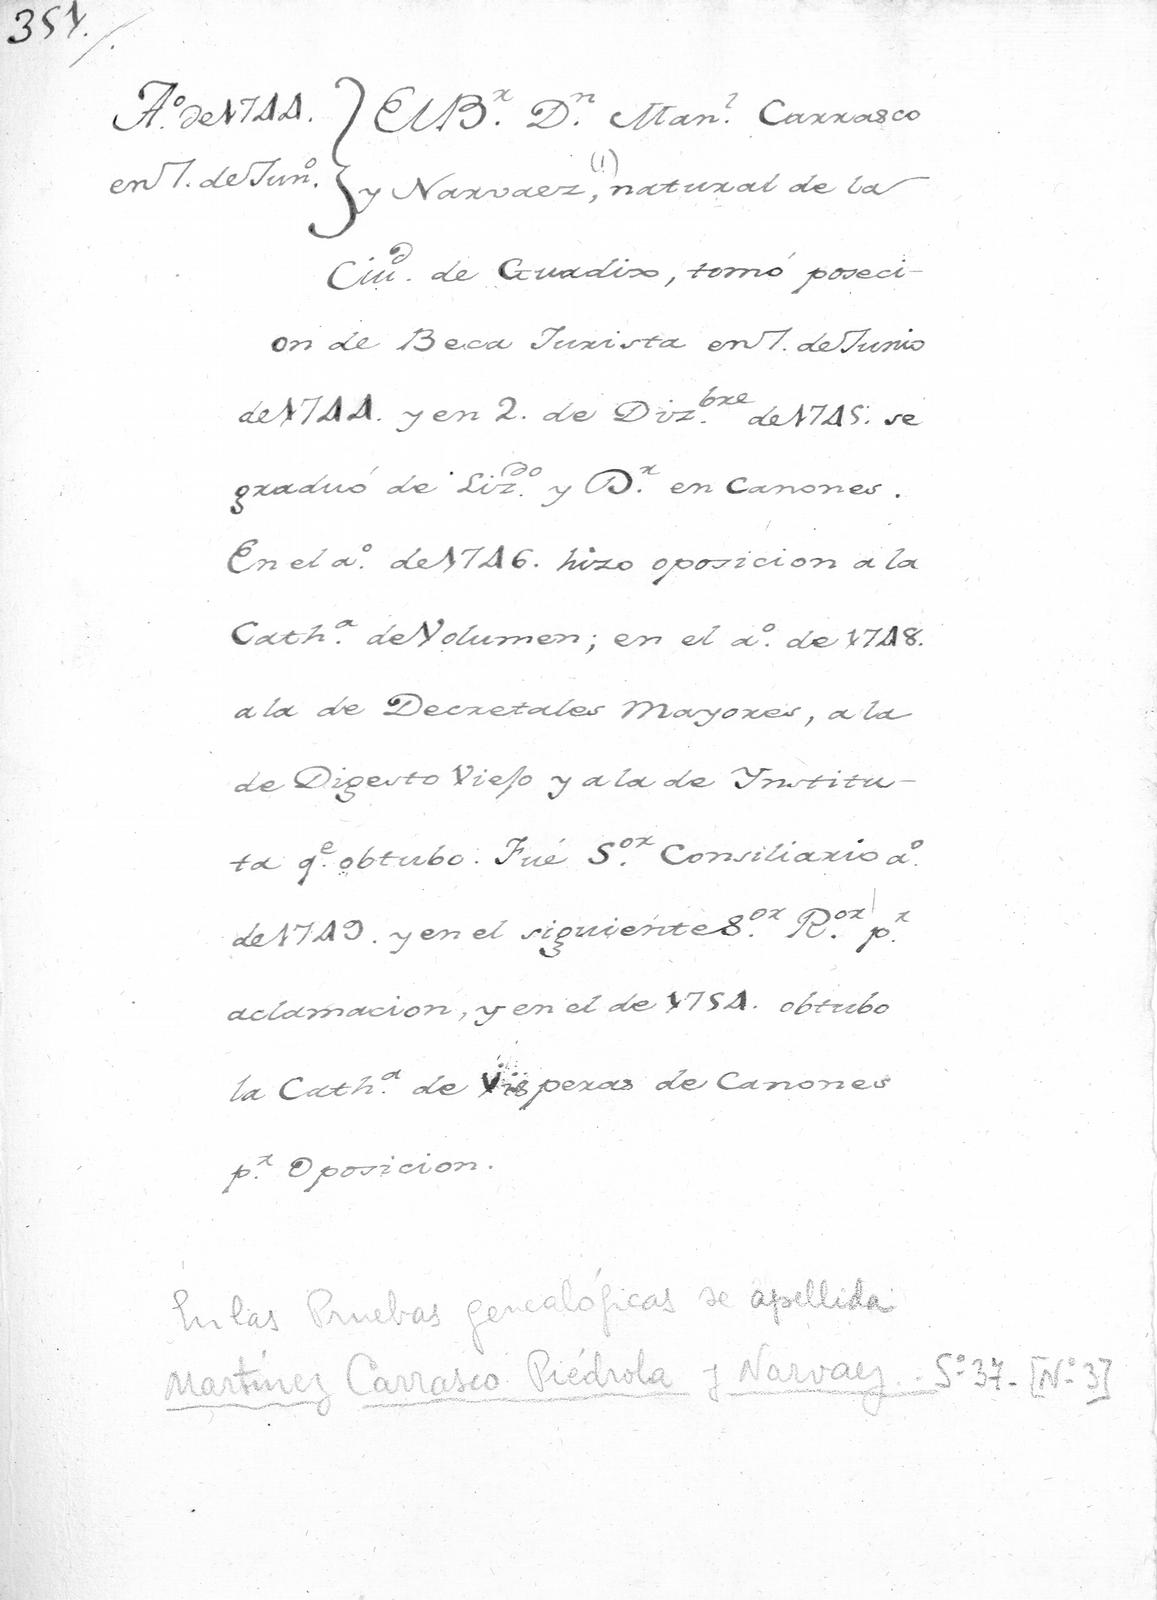 351.
A.º de 1744. El B.r D.n Man.l Carrasco
en 7. de Jun.º y Narvaez,(1) natural de la
Ciu.d de Guadix, tomó poseci-
on de Beca Jurista en 7. de Junio
de 1744. y en 2. de Diz.bre de 1745. se
graduó de Liz.do y D.r en Canones.
En el a.º de 1746. hizo oposicion a la
Cath.a de Volumen; en el a.º de 1748.
a la de Decretales Mayores, a la
de Digesto Viejo y a la de Ynstitu-
ta q.e obtubo. Fué S.or Consiliario a.º
de 1749. y en el siguiente S.or R.or p.r
aclamacion, y en el de 1754. obtubo
la Cath.a de Visperas de Canones
p.r Oposicion.
En las Pruebas genealógicas se apellida
Martínez Carrasco Piédrola y Narvaez.. Sº 37- [Nº 3]